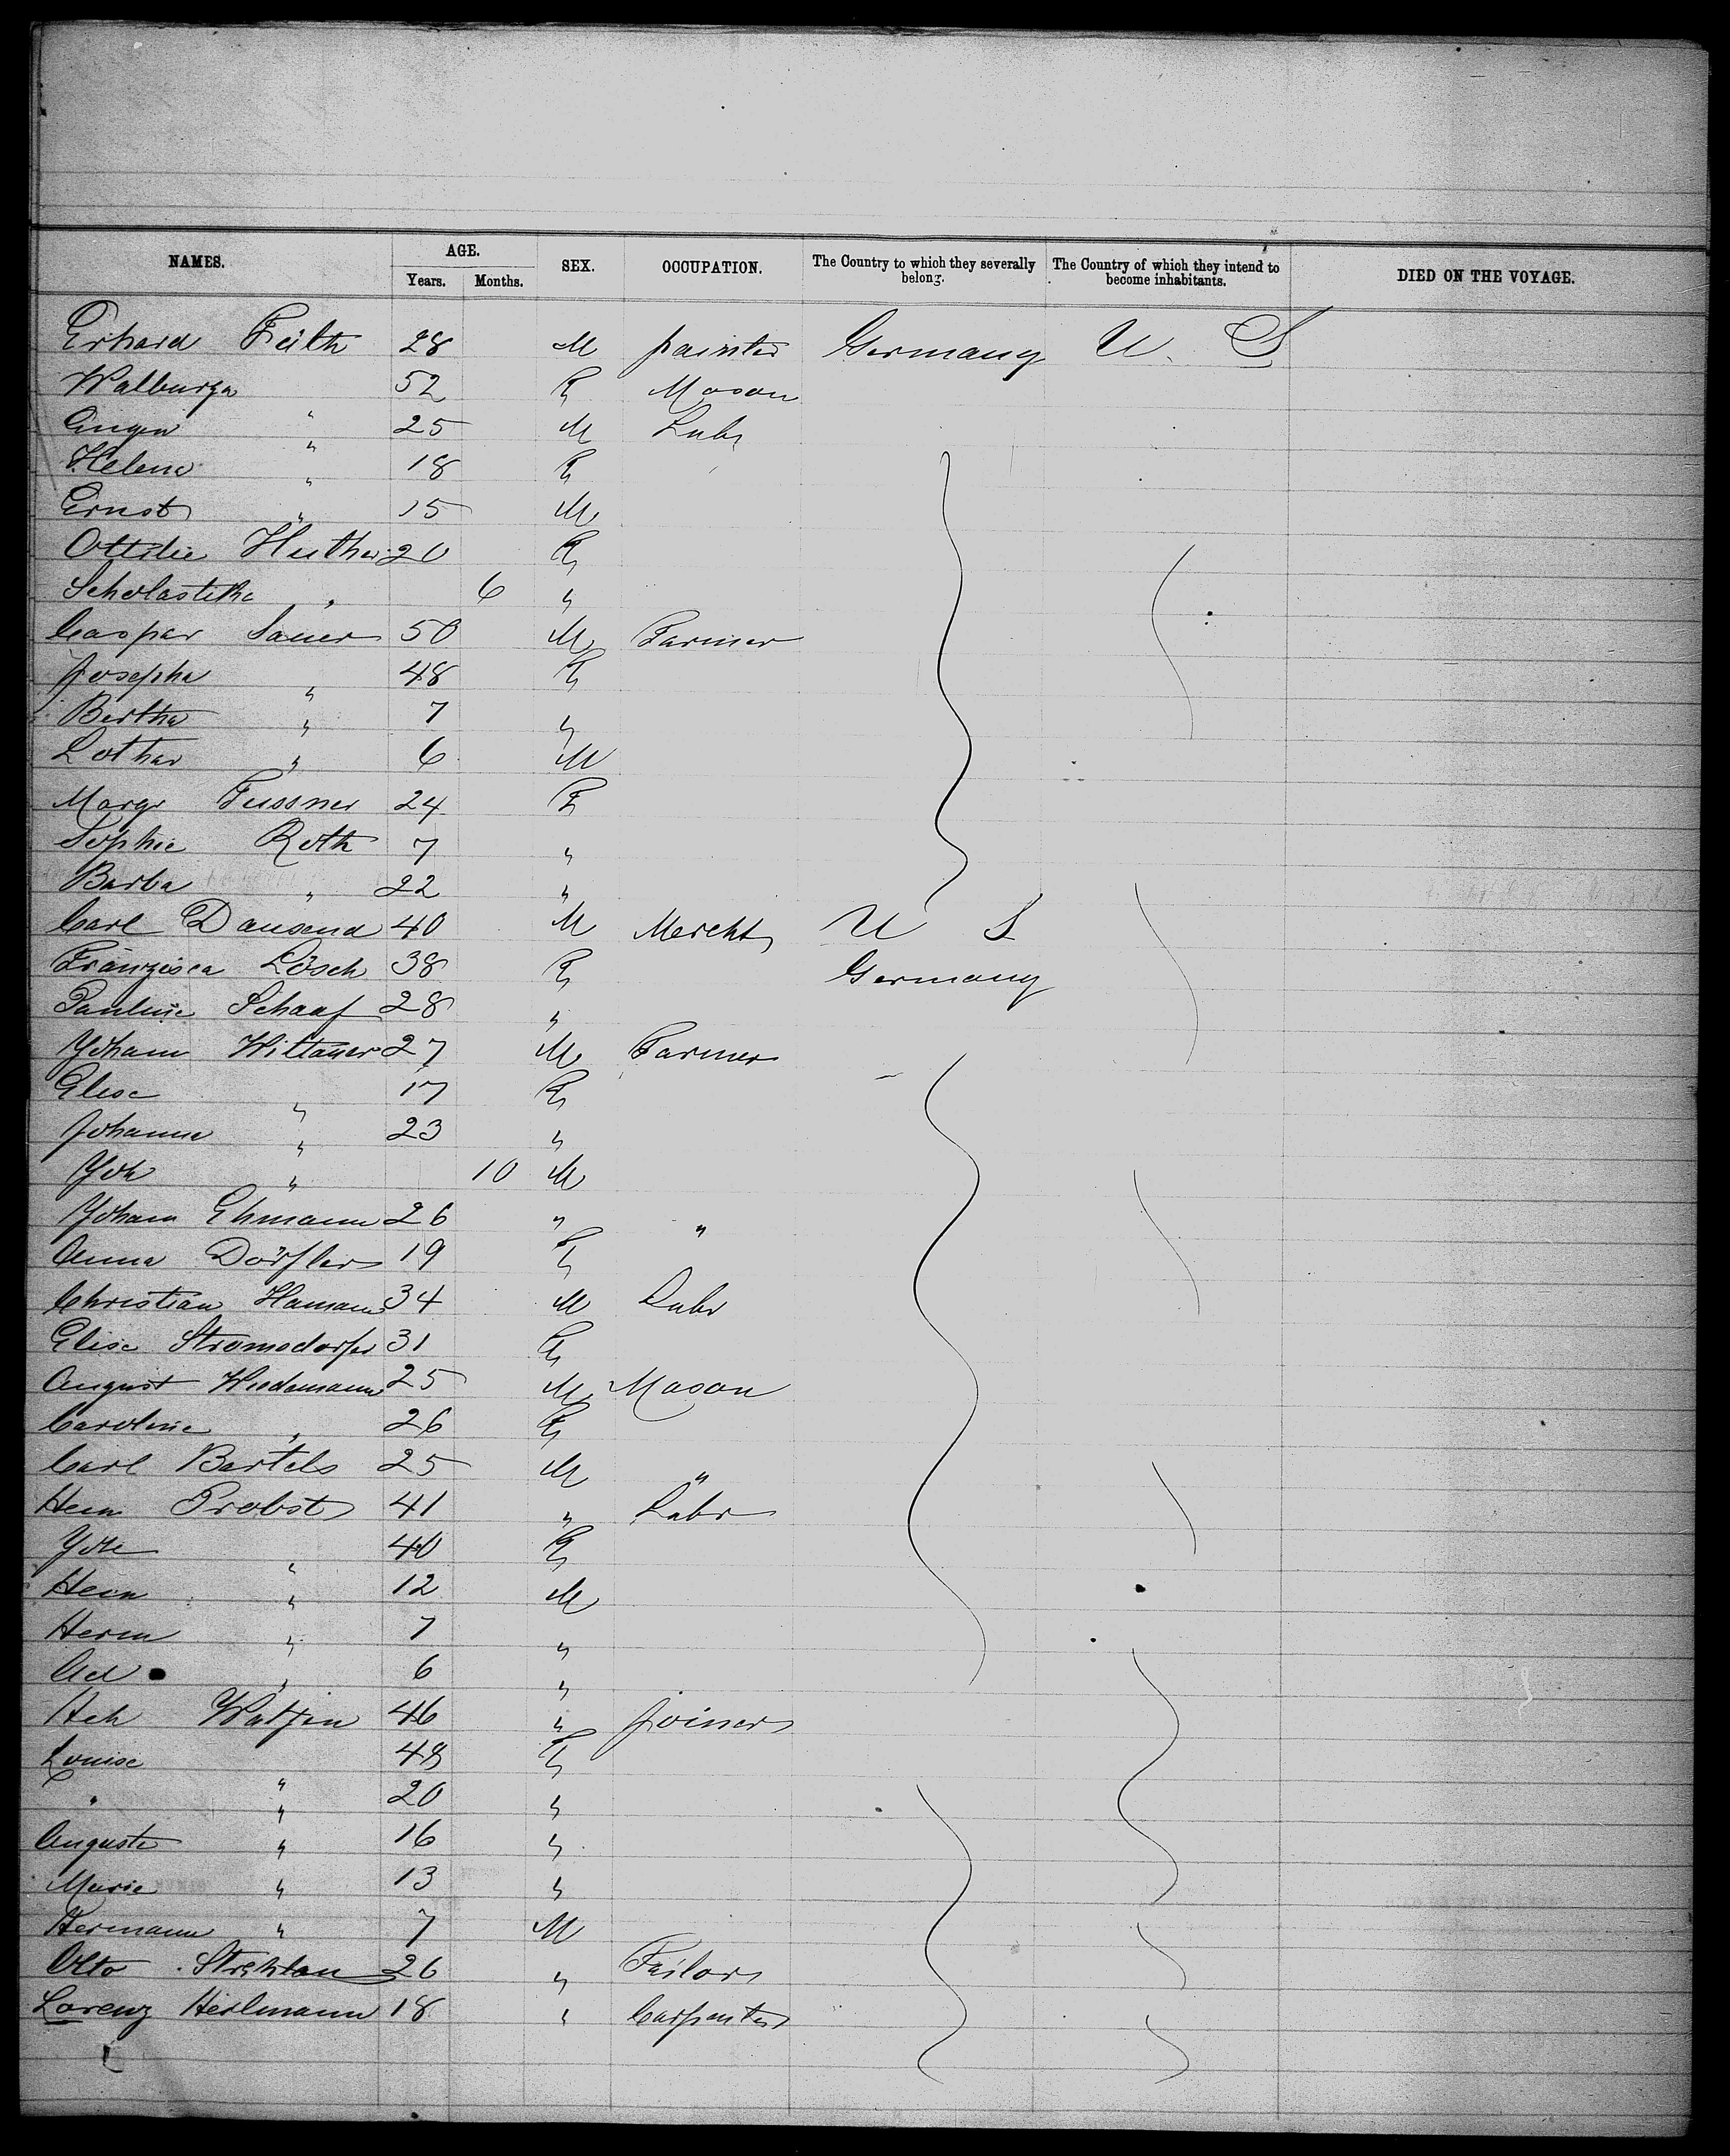 NAMES. AGE. SEX. OCCUPATION. The Country to which they severally belong. The Country of which they intend to become inhabitants. DIED ON THE VOYAGE.
Years. Months.
Erhard 28 M painter Germany U. S
Walburga 52 F Mason
" 25 M Labr
Helena " 18 F
Ernst " 15 M
Ottilie Huther 20 F
Scholastika " 6 "
Caspar Sauer 50 M Farmer
Josepha " 48 F
Bertha " 7 "
Lothar " 6 M
Margr Fussner 24 F
Sophie Roth 7 "
Barba " 22 "
Carl Dausend 40 M Mercht U S
Franzisca Lösch 38 F Germany
Pauline Schaaf 28 "
Johann Wittauer 27 M Farmer
Elise " 17 F
Johanna " 23 "
Joh " 10 M
Johann Ehmann 26 " "
Anna Dörfler 19 F
Christian Hamann 34 M Labr
Elise Stromsdorfer 31 F
August Wiedemann 25 M Mason
Caroline " 26 F
Carl Bartels 25 M "
Hein Probst 41 " Labr
Joh 40 F
Hein " 12 M
Herm " 7 "
Ad " 6 "
Hch 46 " Joiner
Louise " 48 F
" " 20 "
Auguste " 16 "
Marie " 13 "
Hermann " 7 M
Otto 26 " Tailor
Lorenz Heilmann 18 " Carpenter